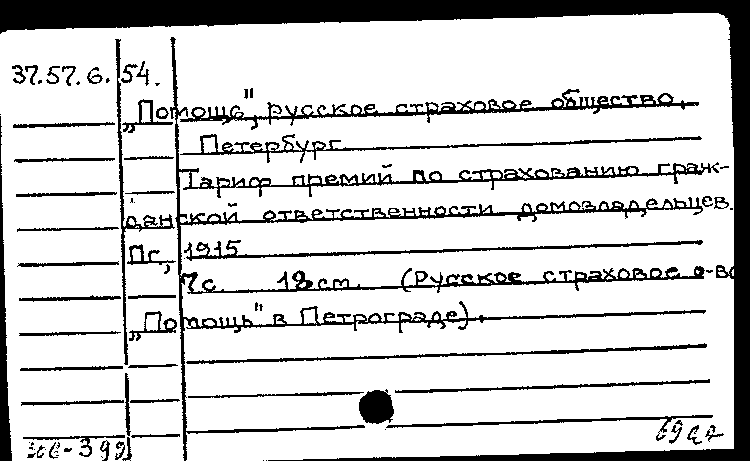 37.57.6.54.
„Помощь", русское страховое общество,
Петербург
Тариф премий по страхованию граж-
данской ответственности домовладельцев.
Пг., 1915
7с. 18см. (Русское страховое о-во
„Помощь" в Петрограде).